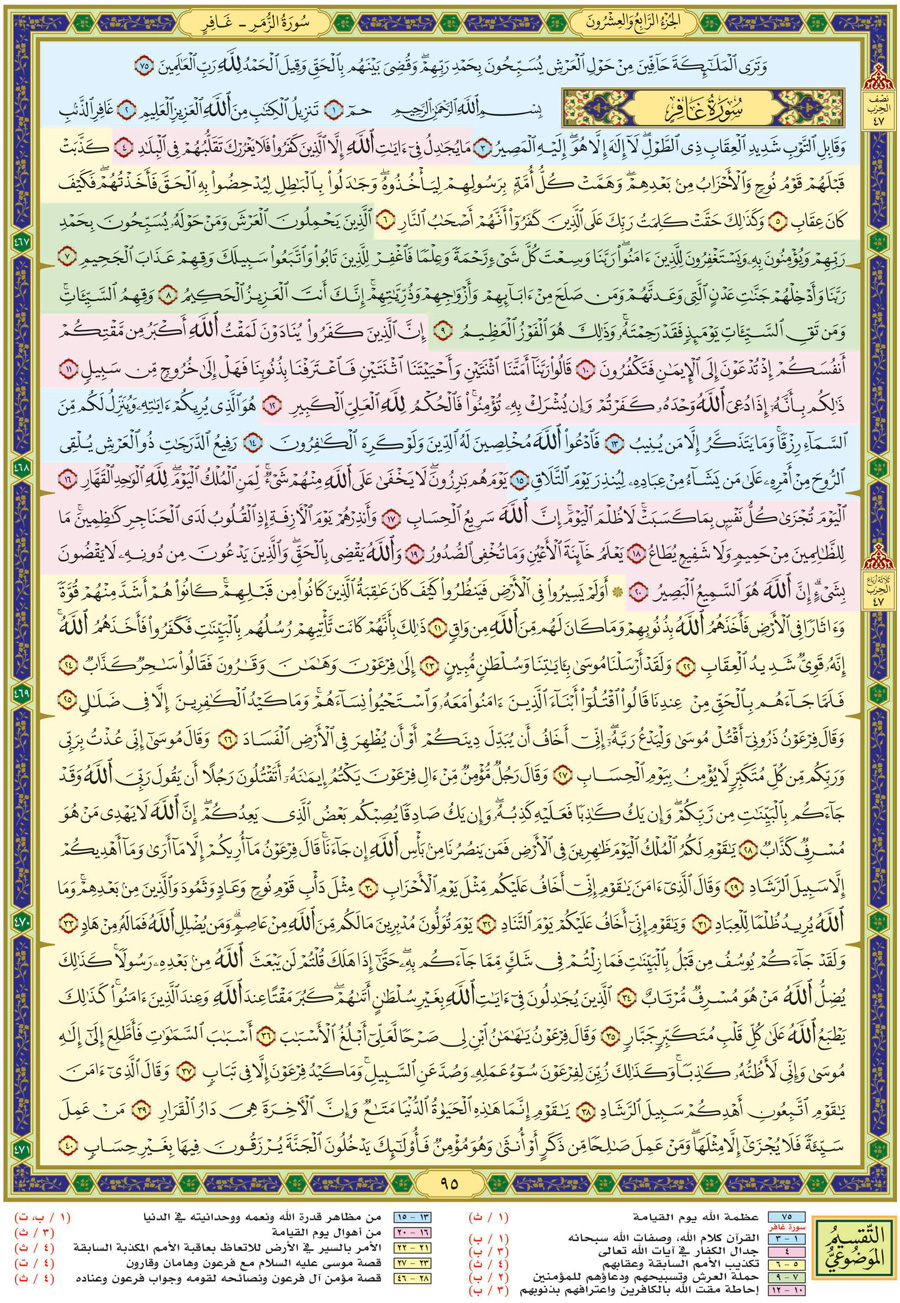 الجُزْءُ الرَّابِعُ وَالعِشْرُونَ
سُورَةُ الزُّمَر - غَافِر
وَتَرَى ٱلْمَلَٰٓئِكَةَ حَآفِّينَ مِنْ حَوْلِ ٱلْعَرْشِ يُسَبِّحُونَ بِحَمْدِ رَبِّهِمْ ۖ وَقُضِىَ بَيْنَهُم بِٱلْحَقِّ وَقِيلَ ٱلْحَمْدُ لِلَّهِ رَبِّ ٱلْعَٰلَمِينَ ٧٥
سُورَةُ غَافِرٍ
بِسْمِ ٱللَّهِ ٱلرَّحْمَٰنِ ٱلرَّحِيمِ حمٓ ١ تَنزِيلُ ٱلْكِتَٰبِ مِنَ ٱللَّهِ ٱلْعَزِيزِ ٱلْعَلِيمِ ٢ غَافِرِ ٱلذَّنۢبِ
وَقَابِلِ ٱلتَّوْبِ شَدِيدِ ٱلْعِقَابِ ذِى ٱلطَّوْلِ ۖ لَآ إِلَٰهَ إِلَّا هُوَ ۖ إِلَيْهِ ٱلْمَصِيرُ ٣ مَا يُجَٰدِلُ فِىٓ ءَايَٰتِ ٱللَّهِ إِلَّا ٱلَّذِينَ كَفَرُوا۟ فَلَا يَغْرُرْكَ تَقَلُّبُهُمْ فِى ٱلْبِلَٰدِ ٤ كَذَّبَتْ
قَبْلَهُمْ قَوْمُ نُوحٍ وَٱلْأَحْزَابُ مِنۢ بَعْدِهِمْ ۖ وَهَمَّتْ كُلُّ أُمَّةٍۭ بِرَسُولِهِمْ لِيَأْخُذُوهُ ۖ وَجَٰدَلُوا۟ بِٱلْبَٰطِلِ لِيُدْحِضُوا۟ بِهِ ٱلْحَقَّ فَأَخَذْتُهُمْ ۖ فَكَيْفَ
كَانَ عِقَابِ ٥ وَكَذَٰلِكَ حَقَّتْ كَلِمَتُ رَبِّكَ عَلَى ٱلَّذِينَ كَفَرُوٓا۟ أَنَّهُمْ أَصْحَٰبُ ٱلنَّارِ ٦ ٱلَّذِينَ يَحْمِلُونَ ٱلْعَرْشَ وَمَنْ حَوْلَهُۥ يُسَبِّحُونَ بِحَمْدِ
رَبِّهِمْ وَيُؤْمِنُونَ بِهِۦ وَيَسْتَغْفِرُونَ لِلَّذِينَ ءَامَنُوا۟ رَبَّنَا وَسِعْتَ كُلَّ شَىْءٍ رَّحْمَةً وَعِلْمًا فَٱغْفِرْ لِلَّذِينَ تَابُوا۟ وَٱتَّبَعُوا۟ سَبِيلَكَ وَقِهِمْ عَذَابَ ٱلْجَحِيمِ ٧
رَبَّنَا وَأَدْخِلْهُمْ جَنَّٰتِ عَدْنٍ ٱلَّتِى وَعَدتَّهُمْ وَمَن صَلَحَ مِنْ ءَابَآئِهِمْ وَأَزْوَٰجِهِمْ وَذُرِّيَّٰتِهِمْ ۚ إِنَّكَ أَنتَ ٱلْعَزِيزُ ٱلْحَكِيمُ ٨ وَقِهِمُ ٱلسَّيِّـَٔاتِ ۚ
وَمَن تَقِ ٱلسَّيِّـَٔاتِ يَوْمَئِذٍ فَقَدْ رَحِمْتَهُۥ ۚ وَذَٰلِكَ هُوَ ٱلْفَوْزُ ٱلْعَظِيمُ ٩ إِنَّ ٱلَّذِينَ كَفَرُوا۟ يُنَادَوْنَ لَمَقْتُ ٱللَّهِ أَكْبَرُ مِن مَّقْتِكُمْ
أَنفُسَكُمْ إِذْ تُدْعَوْنَ إِلَى ٱلْإِيمَٰنِ فَتَكْفُرُونَ ١٠ قَالُوا۟ رَبَّنَآ أَمَتَّنَا ٱثْنَتَيْنِ وَأَحْيَيْتَنَا ٱثْنَتَيْنِ فَٱعْتَرَفْنَا بِذُنُوبِنَا فَهَلْ إِلَىٰ خُرُوجٍ مِّن سَبِيلٍ ١١
ذَٰلِكُم بِأَنَّهُۥٓ إِذَا دُعِىَ ٱللَّهُ وَحْدَهُۥ كَفَرْتُمْ ۖ وَإِن يُشْرَكْ بِهِۦ تُؤْمِنُوا۟ ۚ فَٱلْحُكْمُ لِلَّهِ ٱلْعَلِىِّ ٱلْكَبِيرِ ١٢ هُوَ ٱلَّذِى يُرِيكُمْ ءَايَٰتِهِۦ وَيُنَزِّلُ لَكُم مِّنَ
ٱلسَّمَآءِ رِزْقًا ۚ وَمَا يَتَذَكَّرُ إِلَّا مَن يُنِيبُ ١٣ فَٱدْعُوا۟ ٱللَّهَ مُخْلِصِينَ لَهُ ٱلدِّينَ وَلَوْ كَرِهَ ٱلْكَٰفِرُونَ ١٤ رَفِيعُ ٱلدَّرَجَٰتِ ذُو ٱلْعَرْشِ يُلْقِى
ٱلرُّوحَ مِنْ أَمْرِهِۦ عَلَىٰ مَن يَشَآءُ مِنْ عِبَادِهِۦ لِيُنذِرَ يَوْمَ ٱلتَّلَاقِ ١٥ يَوْمَ هُم بَٰرِزُونَ ۖ لَا يَخْفَىٰ عَلَى ٱللَّهِ مِنْهُمْ شَىْءٌ ۚ لِّمَنِ ٱلْمُلْكُ ٱلْيَوْمَ ۖ لِلَّهِ ٱلْوَٰحِدِ ٱلْقَهَّارِ ١٦
ٱلْيَوْمَ تُجْزَىٰ كُلُّ نَفْسٍۭ بِمَا كَسَبَتْ ۚ لَا ظُلْمَ ٱلْيَوْمَ ۚ إِنَّ ٱللَّهَ سَرِيعُ ٱلْحِسَابِ ١٧ وَأَنذِرْهُمْ يَوْمَ ٱلْءَازِفَةِ إِذِ ٱلْقُلُوبُ لَدَى ٱلْحَنَاجِرِ كَٰظِمِينَ ۚ مَا
لِلظَّٰلِمِينَ مِنْ حَمِيمٍ وَلَا شَفِيعٍ يُطَاعُ ١٨ يَعْلَمُ خَآئِنَةَ ٱلْأَعْيُنِ وَمَا تُخْفِى ٱلصُّدُورُ ١٩ وَٱللَّهُ يَقْضِى بِٱلْحَقِّ ۖ وَٱلَّذِينَ يَدْعُونَ مِن دُونِهِۦ لَا يَقْضُونَ
بِشَىْءٍ ۗ إِنَّ ٱللَّهَ هُوَ ٱلسَّمِيعُ ٱلْبَصِيرُ ٢٠ ۞ أَوَلَمْ يَسِيرُوا۟ فِى ٱلْأَرْضِ فَيَنظُرُوا۟ كَيْفَ كَانَ عَٰقِبَةُ ٱلَّذِينَ كَانُوا۟ مِن قَبْلِهِمْ ۚ كَانُوا۟ هُمْ أَشَدَّ مِنْهُمْ قُوَّةً
وَءَاثَارًا فِى ٱلْأَرْضِ فَأَخَذَهُمُ ٱللَّهُ بِذُنُوبِهِمْ وَمَا كَانَ لَهُم مِّنَ ٱللَّهِ مِن وَاقٍ ٢١ ذَٰلِكَ بِأَنَّهُمْ كَانَت تَّأْتِيهِمْ رُسُلُهُم بِٱلْبَيِّنَٰتِ فَكَفَرُوا۟ فَأَخَذَهُمُ ٱللَّهُ ۚ
إِنَّهُۥ قَوِىٌّ شَدِيدُ ٱلْعِقَابِ ٢٢ وَلَقَدْ أَرْسَلْنَا مُوسَىٰ بِـَٔايَٰتِنَا وَسُلْطَٰنٍ مُّبِينٍ ٢٣ إِلَىٰ فِرْعَوْنَ وَهَٰمَٰنَ وَقَٰرُونَ فَقَالُوا۟ سَٰحِرٌ كَذَّابٌ ٢٤
فَلَمَّا جَآءَهُم بِٱلْحَقِّ مِنْ عِندِنَا قَالُوا۟ ٱقْتُلُوٓا۟ أَبْنَآءَ ٱلَّذِينَ ءَامَنُوا۟ مَعَهُۥ وَٱسْتَحْيُوا۟ نِسَآءَهُمْ ۚ وَمَا كَيْدُ ٱلْكَٰفِرِينَ إِلَّا فِى ضَلَٰلٍ ٢٥
وَقَالَ فِرْعَوْنُ ذَرُونِىٓ أَقْتُلْ مُوسَىٰ وَلْيَدْعُ رَبَّهُۥٓ ۖ إِنِّىٓ أَخَافُ أَن يُبَدِّلَ دِينَكُمْ أَوْ أَن يُظْهِرَ فِى ٱلْأَرْضِ ٱلْفَسَادَ ٢٦ وَقَالَ مُوسَىٰٓ إِنِّى عُذْتُ بِرَبِّى
وَرَبِّكُم مِّن كُلِّ مُتَكَبِّرٍ لَّا يُؤْمِنُ بِيَوْمِ ٱلْحِسَابِ ٢٧ وَقَالَ رَجُلٌ مُّؤْمِنٌ مِّنْ ءَالِ فِرْعَوْنَ يَكْتُمُ إِيمَٰنَهُۥٓ أَتَقْتُلُونَ رَجُلًا أَن يَقُولَ رَبِّىَ ٱللَّهُ وَقَدْ
جَآءَكُم بِٱلْبَيِّنَٰتِ مِن رَّبِّكُمْ ۖ وَإِن يَكُ كَٰذِبًا فَعَلَيْهِ كَذِبُهُۥ ۖ وَإِن يَكُ صَادِقًا يُصِبْكُم بَعْضُ ٱلَّذِى يَعِدُكُمْ ۖ إِنَّ ٱللَّهَ لَا يَهْدِى مَنْ هُوَ
مُسْرِفٌ كَذَّابٌ ٢٨ يَٰقَوْمِ لَكُمُ ٱلْمُلْكُ ٱلْيَوْمَ ظَٰهِرِينَ فِى ٱلْأَرْضِ فَمَن يَنصُرُنَا مِنۢ بَأْسِ ٱللَّهِ إِن جَآءَنَا ۚ قَالَ فِرْعَوْنُ مَآ أُرِيكُمْ إِلَّا مَآ أَرَىٰ وَمَآ أَهْدِيكُمْ
إِلَّا سَبِيلَ ٱلرَّشَادِ ٢٩ وَقَالَ ٱلَّذِىٓ ءَامَنَ يَٰقَوْمِ إِنِّىٓ أَخَافُ عَلَيْكُم مِّثْلَ يَوْمِ ٱلْأَحْزَابِ ٣٠ مِثْلَ دَأْبِ قَوْمِ نُوحٍ وَعَادٍ وَثَمُودَ وَٱلَّذِينَ مِنۢ بَعْدِهِمْ ۚ وَمَا
ٱللَّهُ يُرِيدُ ظُلْمًا لِّلْعِبَادِ ٣١ وَيَٰقَوْمِ إِنِّىٓ أَخَافُ عَلَيْكُمْ يَوْمَ ٱلتَّنَادِ ٣٢ يَوْمَ تُوَلُّونَ مُدْبِرِينَ مَا لَكُم مِّنَ ٱللَّهِ مِنْ عَاصِمٍ ۗ وَمَن يُضْلِلِ ٱللَّهُ فَمَا لَهُۥ مِنْ هَادٍ ٣٣
وَلَقَدْ جَآءَكُمْ يُوسُفُ مِن قَبْلُ بِٱلْبَيِّنَٰتِ فَمَا زِلْتُمْ فِى شَكٍّ مِّمَّا جَآءَكُم بِهِۦ ۖ حَتَّىٰٓ إِذَا هَلَكَ قُلْتُمْ لَن يَبْعَثَ ٱللَّهُ مِنۢ بَعْدِهِۦ رَسُولًا ۚ كَذَٰلِكَ
يُضِلُّ ٱللَّهُ مَنْ هُوَ مُسْرِفٌ مُّرْتَابٌ ٣٤ ٱلَّذِينَ يُجَٰدِلُونَ فِىٓ ءَايَٰتِ ٱللَّهِ بِغَيْرِ سُلْطَٰنٍ أَتَىٰهُمْ ۖ كَبُرَ مَقْتًا عِندَ ٱللَّهِ وَعِندَ ٱلَّذِينَ ءَامَنُوا۟ ۚ كَذَٰلِكَ
يَطْبَعُ ٱللَّهُ عَلَىٰ كُلِّ قَلْبِ مُتَكَبِّرٍ جَبَّارٍ ٣٥ وَقَالَ فِرْعَوْنُ يَٰهَٰمَٰنُ ٱبْنِ لِى صَرْحًا لَّعَلِّىٓ أَبْلُغُ ٱلْأَسْبَٰبَ ٣٦ أَسْبَٰبَ ٱلسَّمَٰوَٰتِ فَأَطَّلِعَ إِلَىٰٓ إِلَٰهِ
مُوسَىٰ وَإِنِّى لَأَظُنُّهُۥ كَٰذِبًا ۚ وَكَذَٰلِكَ زُيِّنَ لِفِرْعَوْنَ سُوٓءُ عَمَلِهِۦ وَصُدَّ عَنِ ٱلسَّبِيلِ ۚ وَمَا كَيْدُ فِرْعَوْنَ إِلَّا فِى تَبَابٍ ٣٧ وَقَالَ ٱلَّذِىٓ ءَامَنَ
يَٰقَوْمِ ٱتَّبِعُونِ أَهْدِكُمْ سَبِيلَ ٱلرَّشَادِ ٣٨ يَٰقَوْمِ إِنَّمَا هَٰذِهِ ٱلْحَيَوٰةُ ٱلدُّنْيَا مَتَٰعٌ وَإِنَّ ٱلْءَاخِرَةَ هِىَ دَارُ ٱلْقَرَارِ ٣٩ مَنْ عَمِلَ
سَيِّئَةً فَلَا يُجْزَىٰٓ إِلَّا مِثْلَهَا ۖ وَمَنْ عَمِلَ صَٰلِحًا مِّن ذَكَرٍ أَوْ أُنثَىٰ وَهُوَ مُؤْمِنٌ فَأُو۟لَٰٓئِكَ يَدْخُلُونَ ٱلْجَنَّةَ يُرْزَقُونَ فِيهَا بِغَيْرِ حِسَابٍ ٤٠
نصف الحزب ٤٧
ثلاثة أرباع الحزب ٤٧
٤٦٧
٤٦٨
٤٦٩
٤٧٠
٤٧١
٩٥
التَّقسِيمُ المَوضُوعيُّ
٧٥ عظمة الله يوم القيامة (١ / ث)
سورة غافر
١ - ٣ القرآن كلام الله، وصفات الله سبحانه (١ / ب)
٤ جدال الكفار في آيات الله تعالى (٣ / ب)
٥ - ٦ تكذيب الأمم السابقة وعقابهم (٤ / ث)
٧ - ٩ حملة العرش وتسبيحهم ودعاؤهم للمؤمنين (٢ / ب)
١٠ - ١٢ إحاطة مقت الله بالكافرين واعترافهم بذنوبهم (٣ / ب)
١٣ - ١٥ من مظاهر قدرة الله ونعمه ووحدانيته في الدنيا (١ / ب، ت)
١٦ - ٢٠ من أهوال يوم القيامة (٣ / ث)
٢١ - ٢٢ الأمر بالسير في الأرض للاتعاظ بعاقبة الأمم المكذبة السابقة (٤ / ث)
٢٣ - ٢٧ قصة موسى عليه السلام مع فرعون وهامان وقارون (٤ / ت)
٢٨ - ٤٦ قصة مؤمن آل فرعون ونصائحه لقومه وجواب فرعون وعناده (٤ / ث)